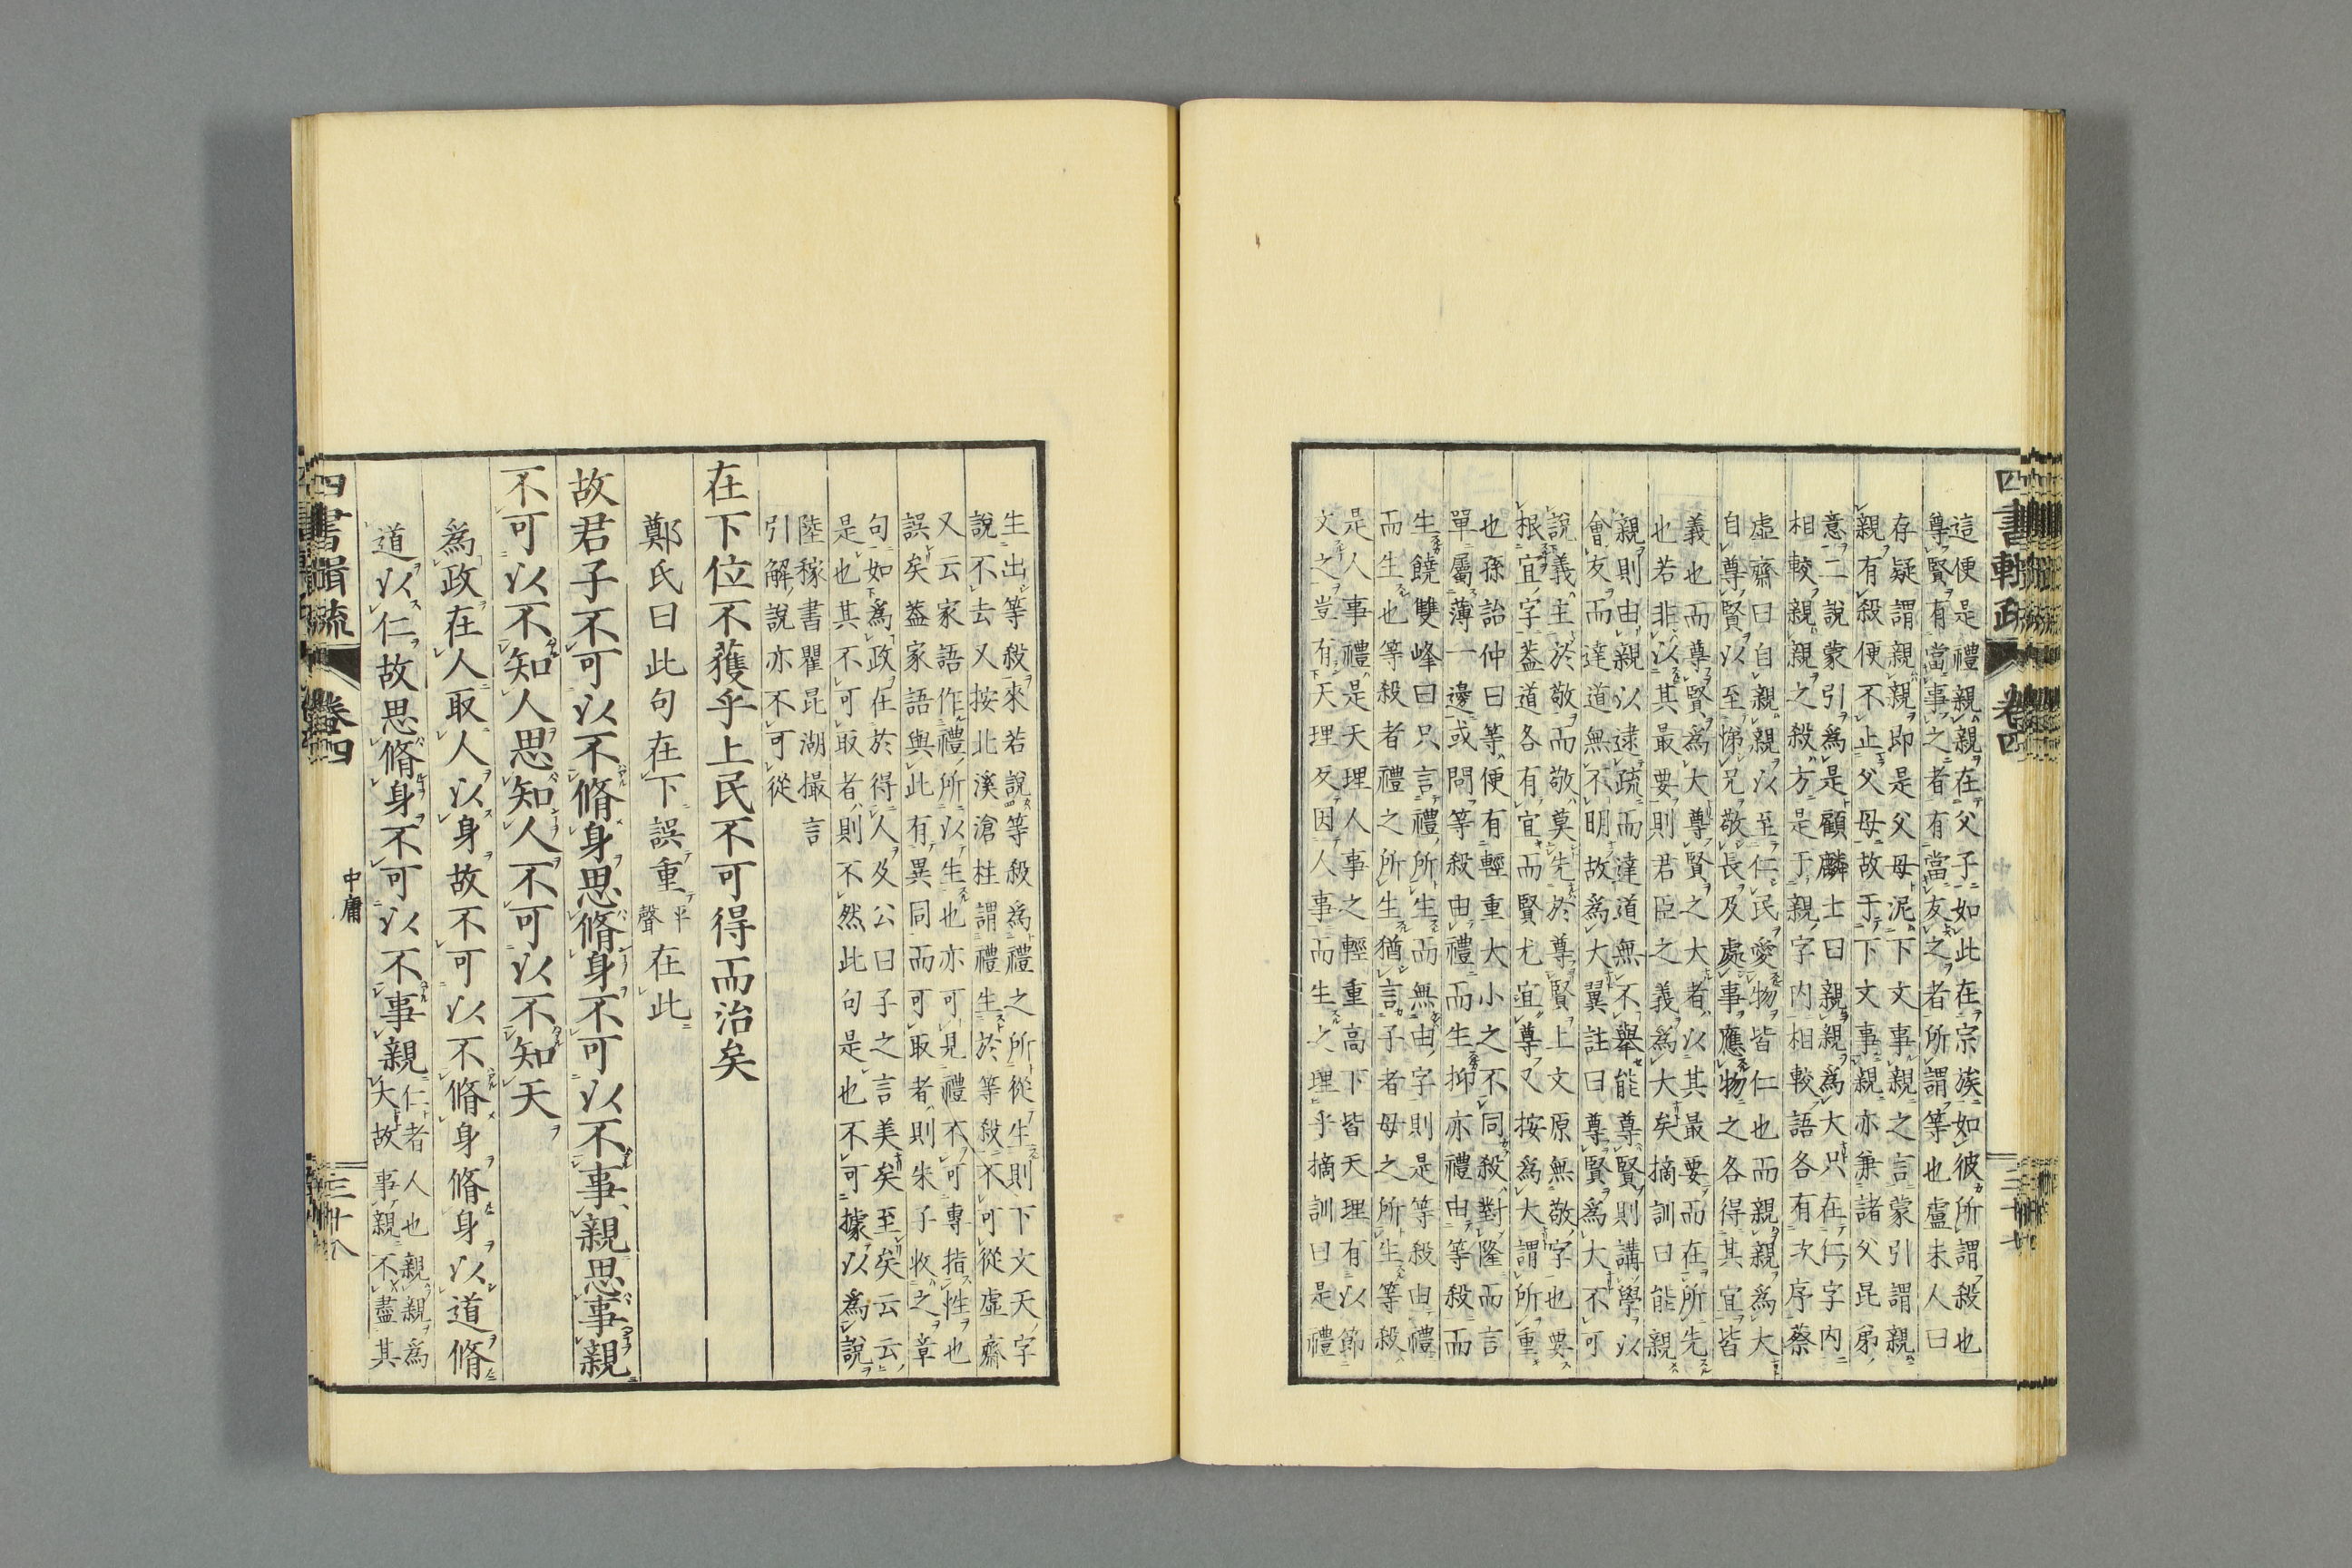 這便是禮親親在父子如此在宗族如彼所謂殺也
尊賢有當事之者有當友之者所謂等也盧未人曰
存疑謂親親即是父母泥下文事親之言蒙引謂親
親有殺便不止父母故于下文事親亦兼諸父昆弟
意二說蒙引爲是顧麟士曰親親爲大只在仁字內
相較親親之殺方是于親字內相較語各有次序蔡
虛齋曰自親親以至仁民愛物皆仁也而親親爲大
自尊賢以至悌兄敬長及處事應物之各得其宜皆
義也而尊賢爲大尊賢之大者以其最要而在所先
也若非以其最要則君臣之義爲大矣摘訓曰能親
親則由親以逮疏而達道無不舉能尊賢則講學以
會友而達道無不明故爲大翼註曰尊賢爲大不可
說義主於敬而敬莫先於尊賢上文原無敬字也要
根宜字葢道各有宜而賢尤宜尊又按爲大謂所重
也孫詒仲曰等便有輕重大小之不同殺對隆而言
單屬薄一邊或問等殺由禮而生抑亦禮由等殺而
生饒雙峰曰只言禮所生而無由字則是等殺由禮
而生也等殺者禮之所生猶言子者母之所生等殺
是人事禮是天理人事之輕重高下皆天理有以節
文之豈有天理反因人事而生之理乎摘訓曰是禮
四書輯疏
卷四
中庸
三十七
生出等殺來若說等殺爲禮之所從生則下文天字
說不去又按北溪滄柱謂禮生於等殺不可從虛齋
又云家語作禮所以生也亦可見禮不可專指性也
誤矣葢家語與此有異同而可取者則朱子收之章
句如爲政在於得人及公曰子之言美矣至矣云云
是也其不可取者則不然此句是也不可據以爲說
陸稼書瞿昆湖撮言
引解說亦不可從
在下位不獲乎上民不可得而治矣
鄭氏曰此句在下誤重平聲在此
故君子不可以不脩身思脩身不可以不事親思事親
不可以不知人思知人不可以不知天
爲政在人取人以身故不可以不脩身脩身以道脩
道以仁故思脩身不可以不事親仁者人也親親爲
大故事親不盡其
四書輯疏
卷四
中庸
三十八